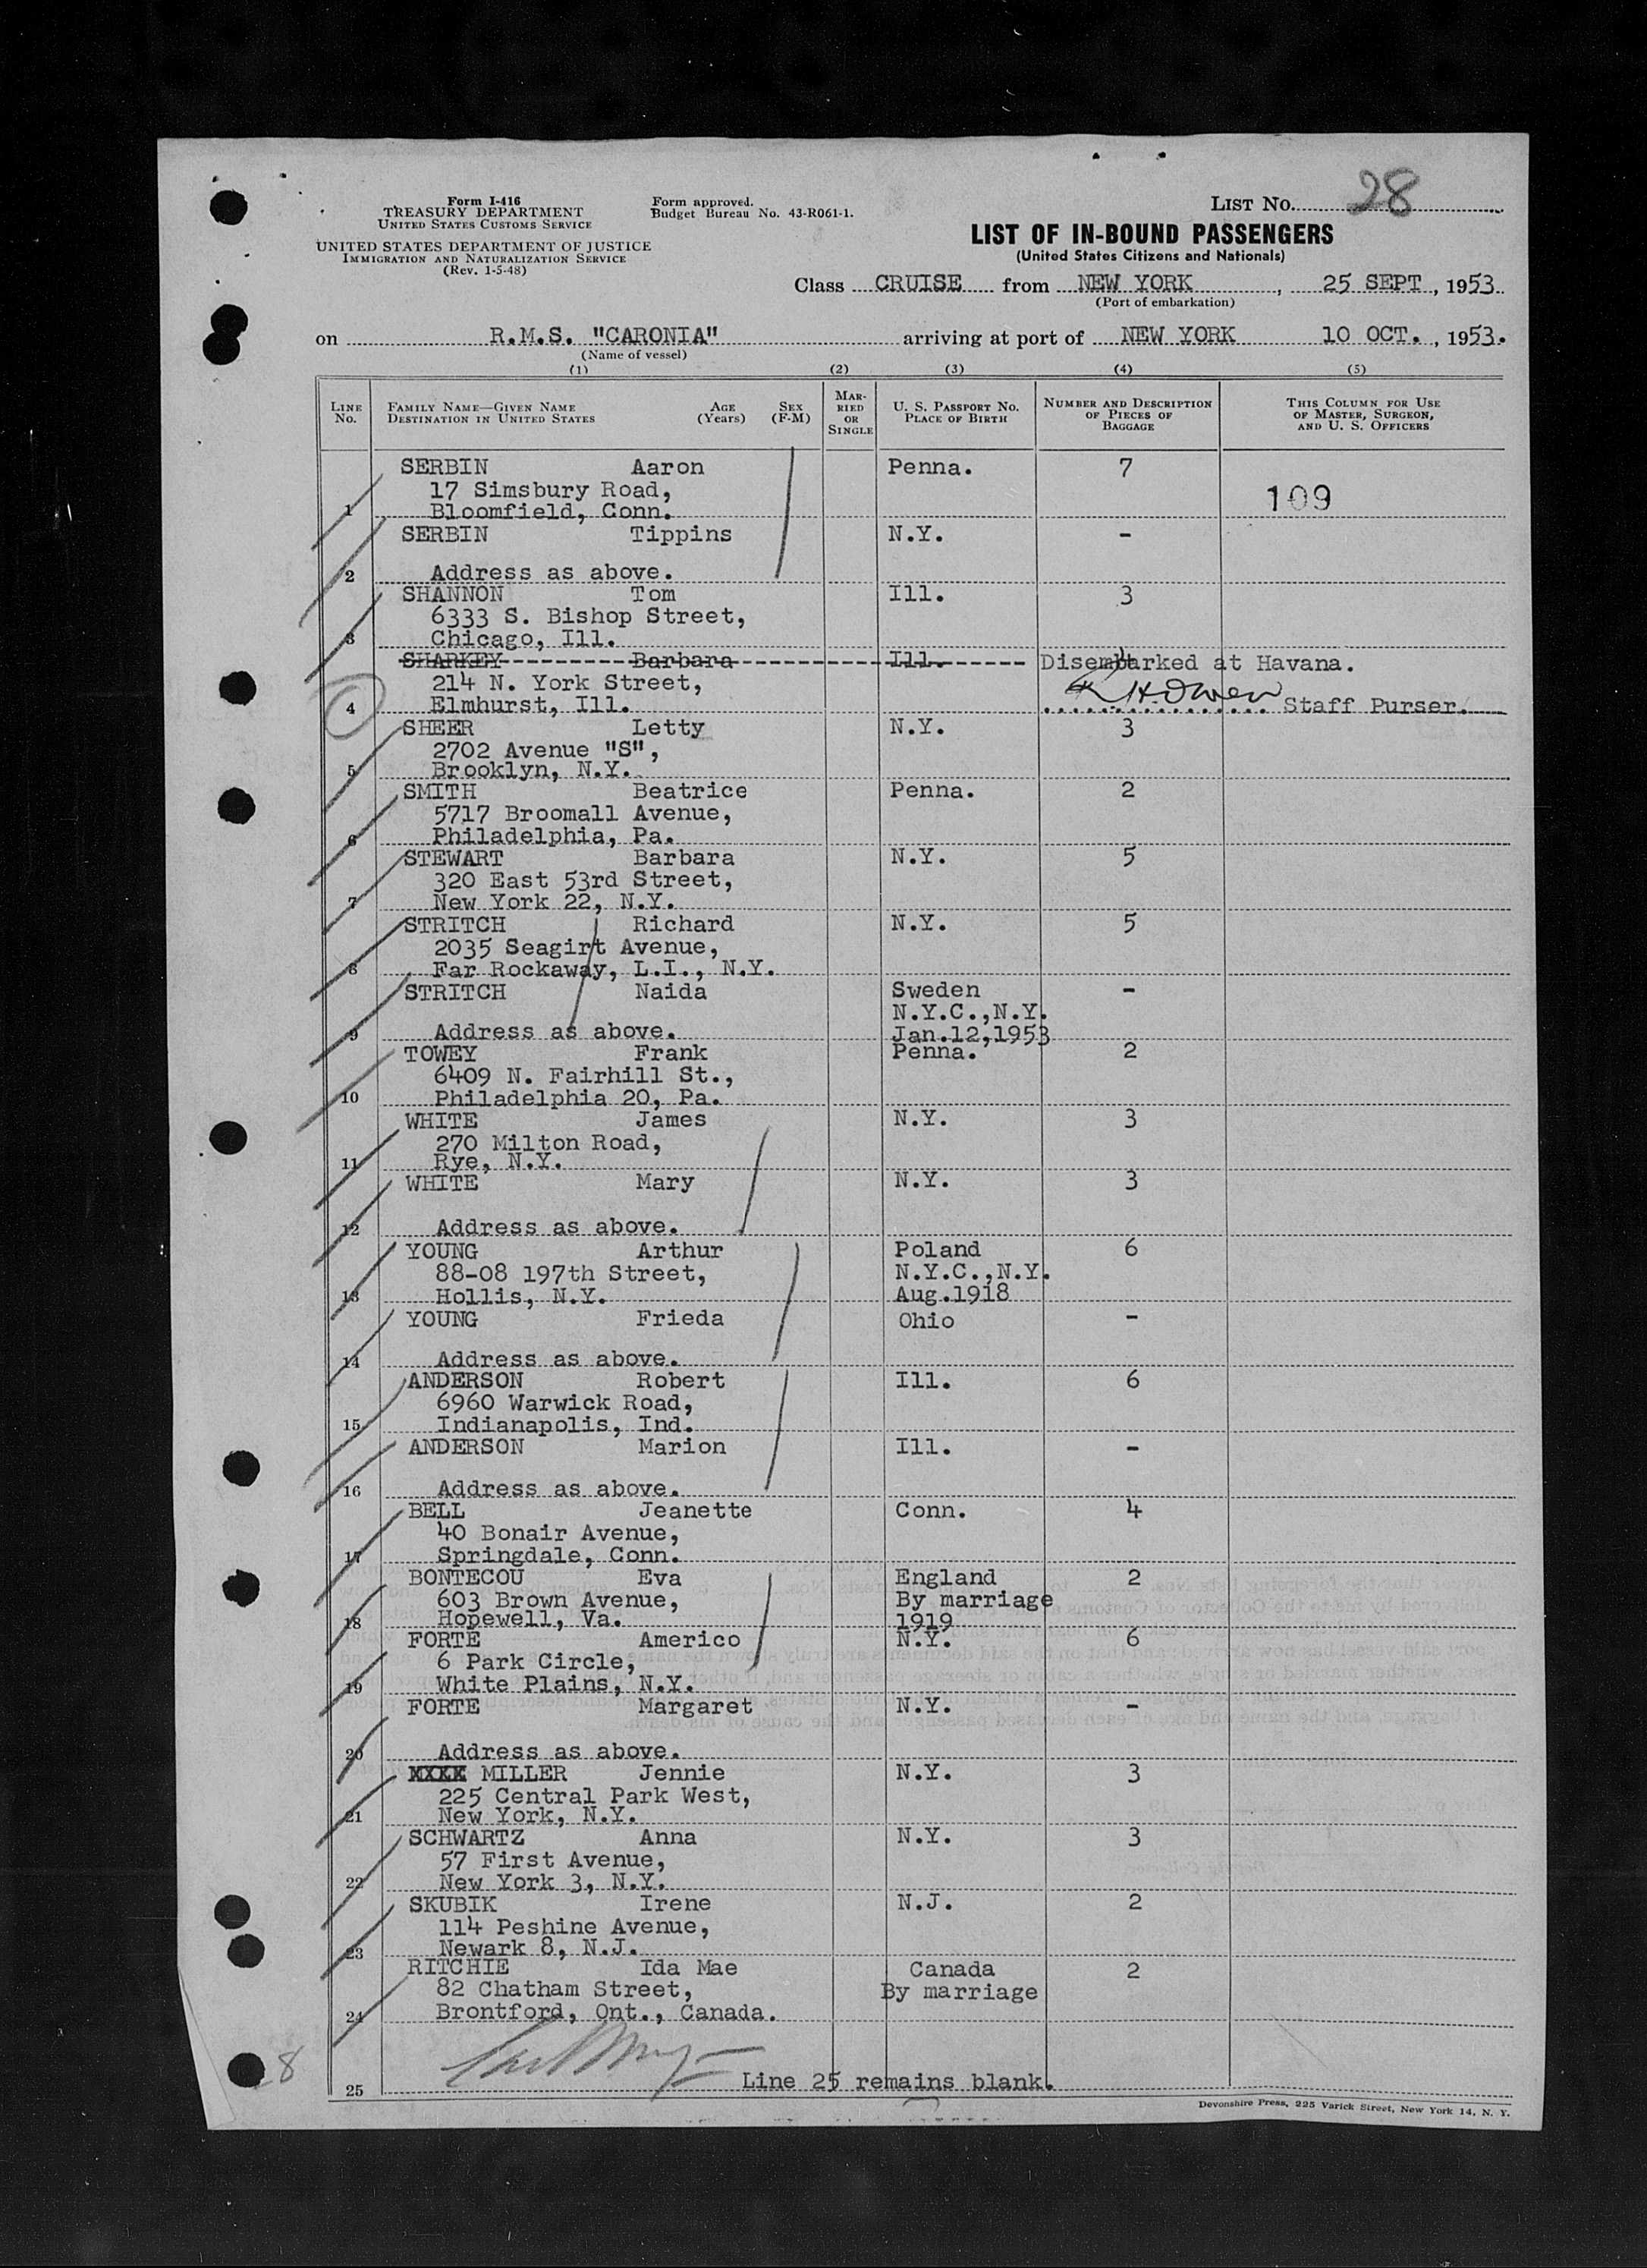 Form I-416
TREASURY DEPARTMENT
UNITED STATES CUSTOMS SERVICE
UNITED STATES DEPARTMENT OF JUSTICE
IMMIGRATION AND NATURALIZATION SERVICE
(Rev. 1-5-48)
Form approved.
Budget Bureau No. 43-R061-1.
LIST No. 28
LIST OF IN-BOUND PASSENGERS
(United States Citizens and Nationals)
Class CRUISE from NEW YORK, 25 SEPT, 1953
(Port of embarkation)
on R.M.S. "CARONIA" arriving at port of NEW YORK 10 OCT., 1953.
(Name of vessel)
(1) (2) (3) (4) (5)
LINE No. FAMILY NAME—GIVEN NAME DESTINATION IN UNITED STATES AGE (Years) SEX (F-M) MARRIED OR SINGLE U. S. PASSPORT NO. PLACE OF BIRTH NUMBER AND DESCRIPTION OF PIECES OF BAGGAGE THIS COLUMN FOR USE OF MASTER, SURGEON, AND U. S. OFFICERS
SERBIN Aaron Penna. 7
17 Simsbury Road,
1 Bloomfield, Conn. 109
SERBIN Tippins N.Y. -
2 Address as above.
SHANNON Tom Ill. 3
6333 S. Bishop Street,
3 Chicago, Ill.
SHARKEY Barbara Ill. Disembarked at Havana.
214 N. York Street,
4 Elmhurst, Ill. R.H.Owen Staff Purser.
SHEER Letty N.Y. 3
2702 Avenue "S",
5 Brooklyn, N.Y.
SMITH Beatrice Penna. 2
5717 Broomall Avenue,
6 Philadelphia, Pa.
STEWART Barbara N.Y. 5
320 East 53rd Street,
7 New York 22, N.Y.
STRITCH Richard N.Y. 5
2035 Seagirt Avenue,
8 Far Rockaway, L.I., N.Y.
STRITCH Naida Sweden -
N.Y.C.,N.Y.
9 Address as above. Jan.12,1953
TOWEY Frank Penna. 2
6409 N. Fairhill St.,
10 Philadelphia 20, Pa.
WHITE James N.Y. 3
270 Milton Road,
11 Rye, N.Y.
WHITE Mary N.Y. 3
12 Address as above.
YOUNG Arthur Poland 6
88-08 197th Street, N.Y.C.,N.Y.
13 Hollis, N.Y. Aug.1918
YOUNG Frieda Ohio -
14 Address as above.
ANDERSON Robert Ill. 6
6960 Warwick Road,
15 Indianapolis, Ind.
ANDERSON Marion Ill. -
16 Address as above.
BELL Jeanette Conn. 4
40 Bonair Avenue,
17 Springdale, Conn.
BONTECOU Eva England 2
603 Brown Avenue, By marriage
18 Hopewell, Va. 1919
FORTE Americo N.Y. 6
6 Park Circle,
19 White Plains, N.Y.
FORTE Margaret N.Y. -
20 Address as above.
MILLER Jennie N.Y. 3
225 Central Park West,
21 New York, N.Y.
SCHWARTZ Anna N.Y. 3
57 First Avenue,
22 New York 3, N.Y.
SKUBIK Irene N.J. 2
114 Peshine Avenue,
23 Newark 8, N.J.
RITCHIE Ida Mae Canada 2
82 Chatham Street, By marriage
24 Brontford, Ont., Canada.
25 Line 25 remains blank.
Devonshire Press, 225 Varick Street, New York 14, N. Y.